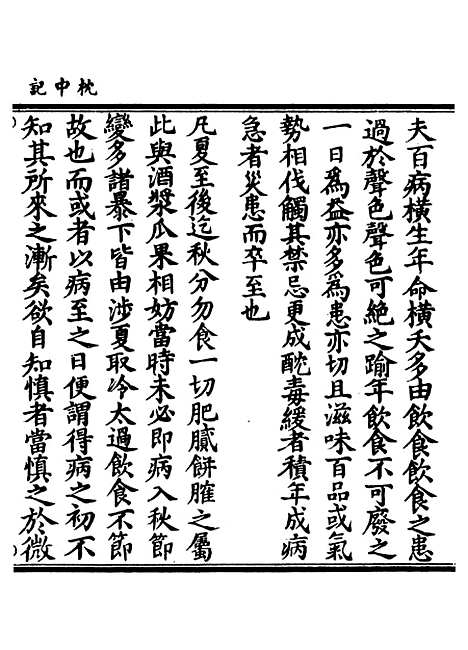 枕中記
夫百病橫生年命橫夭多由飲食飲食之患
過於聲色聲色可絕之踰年飲食不可廢之
一日爲益亦多爲患亦切且滋味百品或氣
勢相伐觸其禁忌更成酖毒緩者積年成病
急者災患而卒至也
凡夏至後迄秋分勿食一切肥膩餅臛之屬
此與酒漿瓜果相妨當時未必即病入秋節
變多諸暴下皆由涉夏取冷太過飲食不節
故也而或者以病至之日便謂得病之初不
知其所來之漸矣欲自知慎者當慎之於微